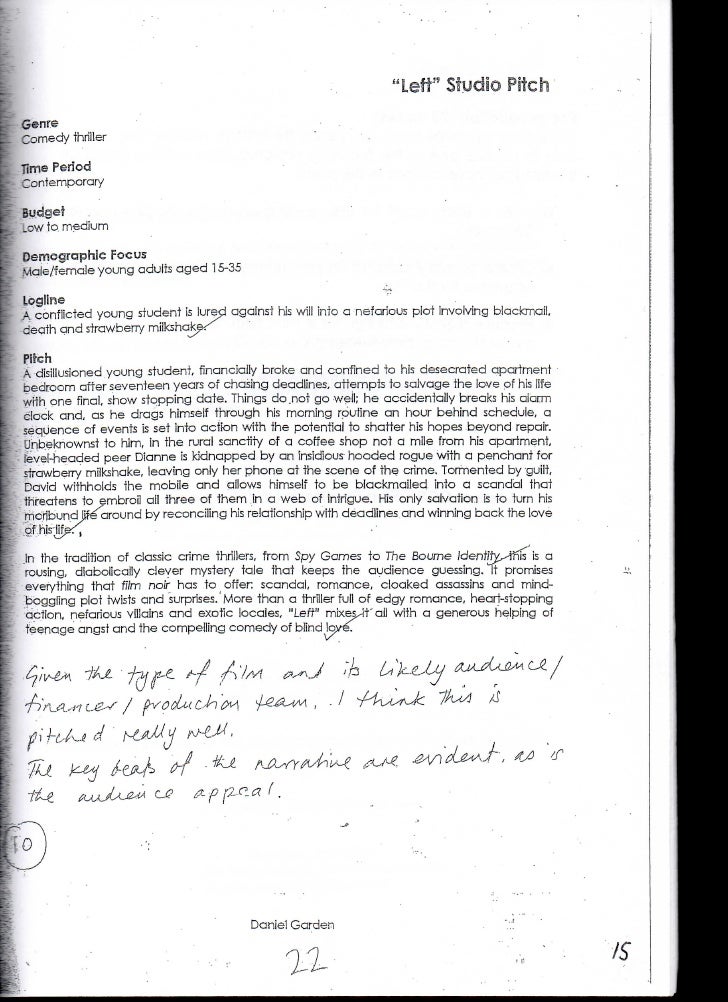 "Left" Studio Pitch
Genre
Comedy thriller
Time Period
Contemporary
Budget
Low to medium
Demographic Focus
Male/female young adults aged 15-35
Logline
A conflicted young student is lured against his will into a nefarious plot involving blackmail,
death and strawberry milkshake.
Pitch
A disillusioned young student, financially broke and confined to his desecrated apartment
bedroom after seventeen years of chasing deadlines, attempts to salvage the love of his life
with one final, show stopping date. Things do not go well; he accidentally breaks his alarm
clock and, as he drags himself through his morning routine an hour behind schedule, a
sequence of events is set into action with the potential to shatter his hopes beyond repair.
Unbeknownst to him, in the rural sanctity of a coffee shop not a mile from his apartment,
level-headed peer Dianne is kidnapped by an insidious hooded rogue with a penchant for
strawberry milkshake, leaving only her phone at the scene of the crime. Tormented by guilt,
David withholds the mobile and allows himself to be blackmailed into a scandal that
threatens to embroil all three of them in a web of intrigue. His only salvation is to turn his
moribund life around by reconciling his relationship with deadlines and winning back the love
of his life.
In the tradition of classic crime thrillers, from Spy Games to The Bourne Identity, this is a
rousing, diabolically clever mystery tale that keeps the audience guessing. It promises
everything that film noir has to offer: scandal, romance, cloaked assassins and mind-
boggling plot twists and surprises. More than a thriller full of edgy romance, heart-stopping
action, nefarious villains and exotic locales, "Left" mixes it all with a generous helping of
teenage angst and the compelling comedy of blind love.
Given the type of film and its likely audience/
financer/production team, I think this is
pitched really well.
The key beats of the narrative are evident, as is
the audience appeal.
10
Daniel Garden
22
15